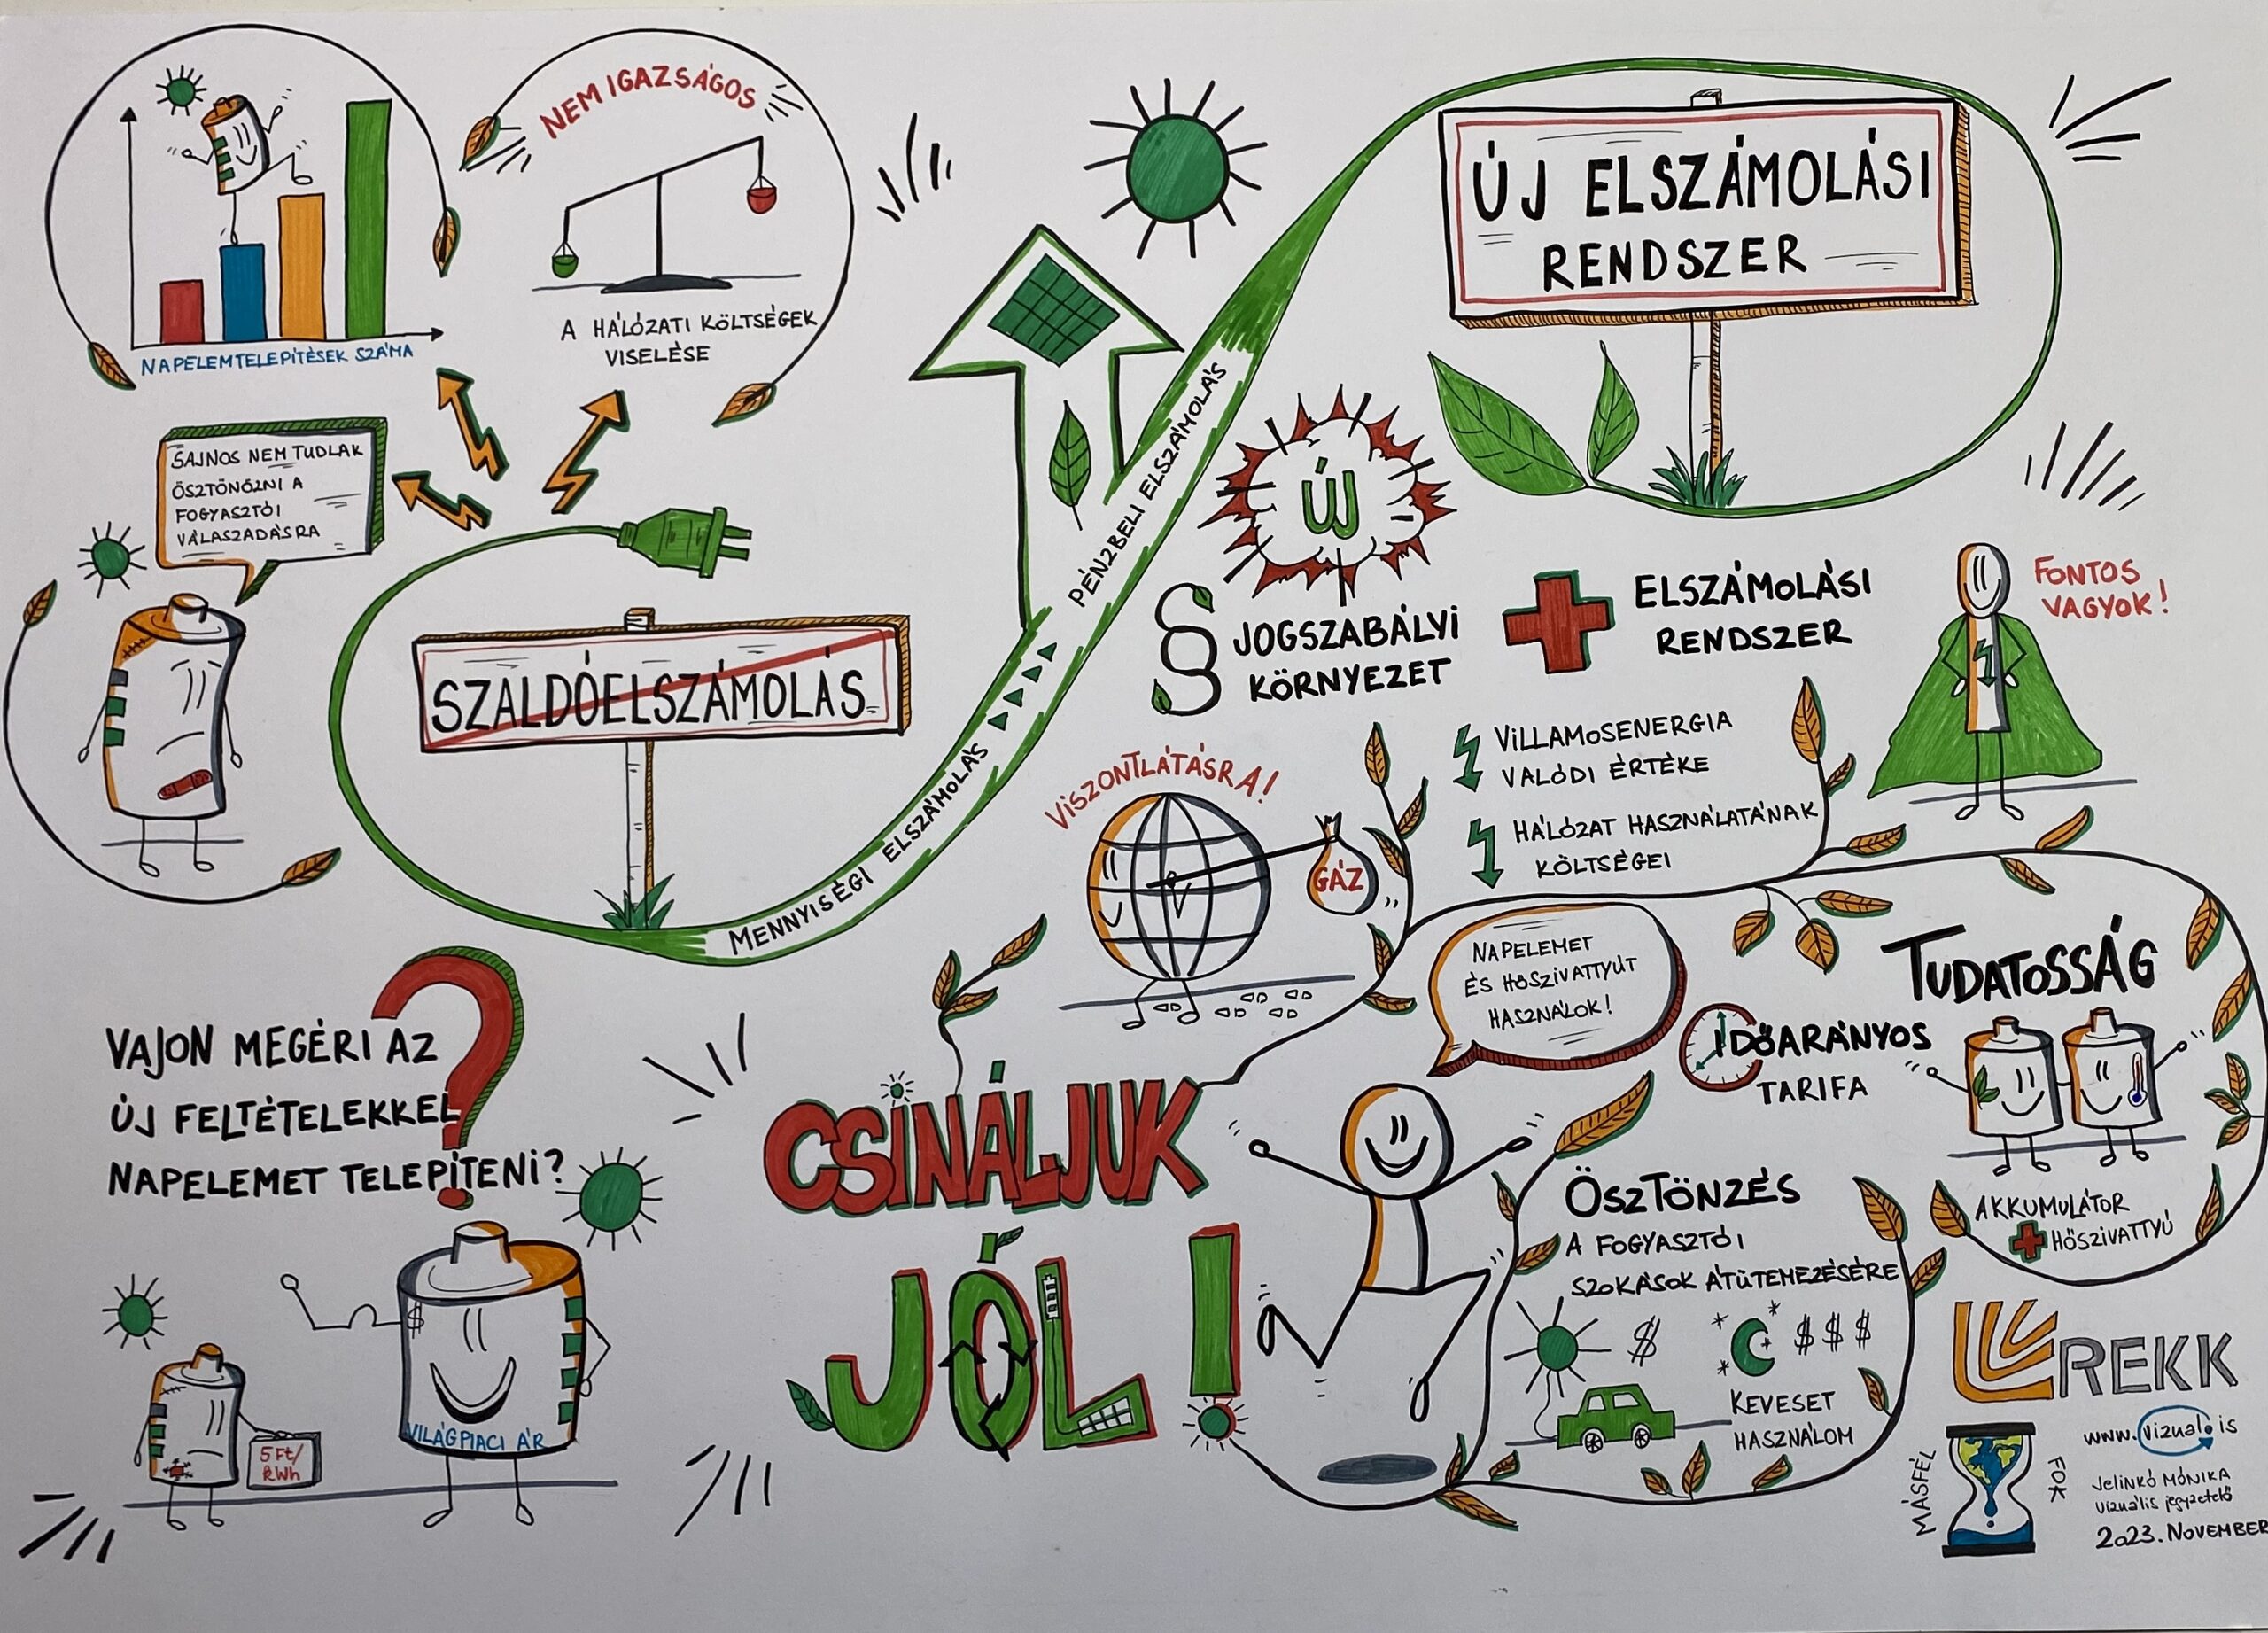 NAPELEMTELEPÍTÉSEK SZÁMA
NEM IGAZSÁGOS
A HÁLÓZATI KÖLTSÉGEK
VISELÉSE
SAJNOS NEM TUDLAK
ÖSZTÖNÖZNI A
FOGYASZTÓI
VÁLASZADÁSRA
SZALDÓELSZÁMOLÁS
MENNYISÉGI ELSZÁMOLÁS
PÉNZBELI ELSZÁMOLÁS
ÚJ ELSZÁMOLÁSI
RENDSZER
ÚJ
§ JOGSZABÁLYI
KÖRNYEZET
ELSZÁMOLÁSI
RENDSZER
FONTOS
VAGYOK!
VILLAMOSENERGIA
VALÓDI ÉRTÉKE
HÁLÓZAT HASZNÁLATÁNAK
KÖLTSÉGEI
VISZONTLÁTÁSRA!
GÁZ
VAJON MEGÉRI AZ
ÚJ FELTÉTELEKKEL
NAPELEMET TELEPÍTENI?
?
5 Ft/
kWh
$
VILÁGPIACI ÁR
CSINÁLJUK
JÓL!
NAPELEMET
ÉS HŐSZIVATTYÚT
HASZNÁLOK!
IDŐARÁNYOS
TARIFA
TUDATOSSÁG
AKKUMULÁTOR
HŐSZIVATTYÚ
ÖSZTÖNZÉS
A FOGYASZTÓI
SZOKÁSOK ÁTÜTEMEZÉSÉRE
$
$$$
KEVESET
HASZNÁLOM
REKK
MÁSFÉL
FOK
www.vizual.is
Jelinkó Mónika
vizuális jegyzetelő
2023. NOVEMBER